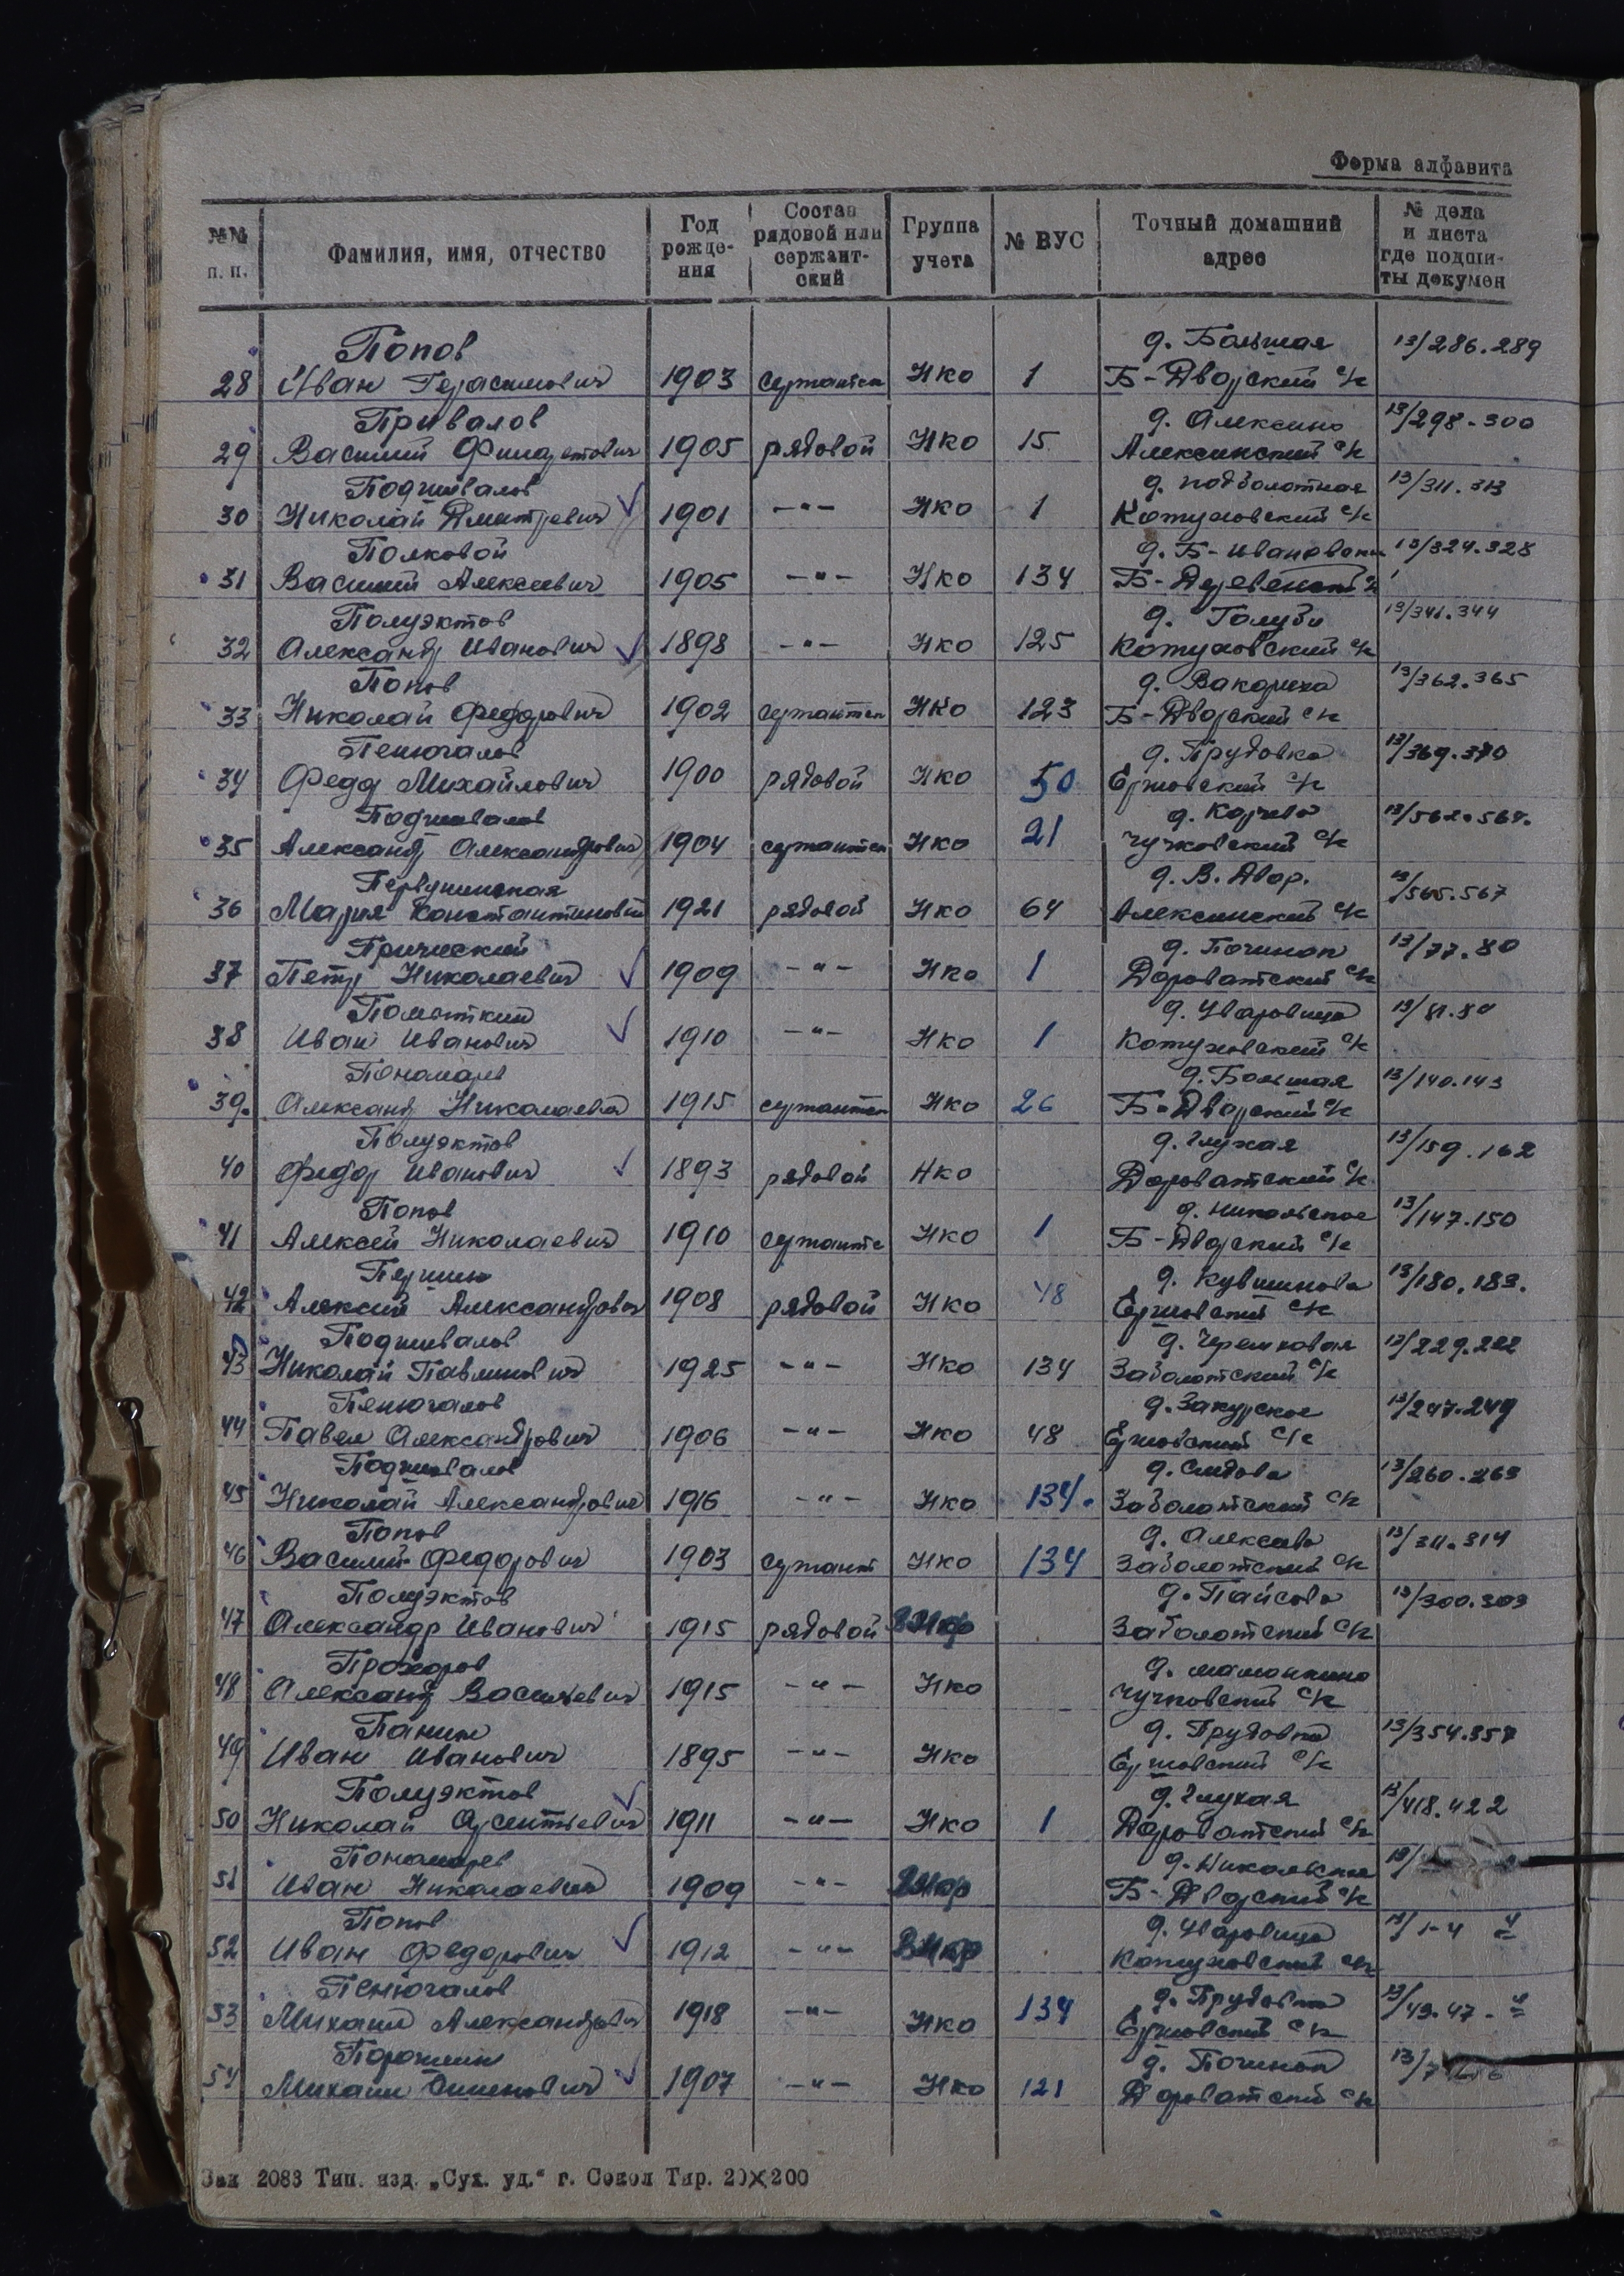 Форма алфавита
№№ п. п.
Фамилия, имя, отчество
Год рожде-ния
Состав рядовой или сержант-ский
Группа учета
№ ВУС
Точный домашний адрес
№ дела и листа где подши-ты докумен
Попов д. Большая 13/286.289
28 Иван Герасимович 1903 сержантск НКО 1 Б-Дворский с/с
Привалов д. Алексино 13/298-300
29 Василий 1905 рядовой НКО 15 Алексинский с/с
Подшивалов д. Подболотная 13/311.313
30 Николай Дмитревич 1901 -"- НКО 1 Кожуховский с/с
Полковой д. Б-Ивановская 13/324.328
31 Василий Алексеевич 1905 -"- НКО 134 Б-Деревенский с/с
Полуэктов д. Голузи 13/341.344
32 Александр Иванович 1898 -"- НКО 125 Кожуховский с/с
Попов д. 13/362.365
33 Николай Федорович 1902 сержантск НКО 123 Б-Дворский с/с
Пенюгалов д. Прудовка 13/369.370
34 Федр Михайлович 1900 рядовой НКО 50 Ершовский с/с
Подшивалов д. 13/562.564.
35 Александр Александрович 1904 сержантск НКО 21 Чучковский с/с
Первушинская д. В. Двор. 13/565.567
36 Мария Константиновна 1921 рядовой НКО 64 Алексинский с/с
д. Починок 13/77.80
37 Петр Николаевич 1909 -"- НКО 1 Дороватский с/с
д. Уваровица 13/81.84
38 Иван Иванович 1910 -"- НКО 1 Кожуховский с/с
Пономарев д. Большая 13/140.143
39. Александр Николаевич 1915 сержантск НКО 26 Б-Дворский с/с
Полуэктов д. Глухая 13/159.162
40 Федор Иванович 1893 рядовой НКО Дороватский с/с
Попов д. Никольское 13/147.150
41 Алексей Николаевич 1910 сержантс НКО 1 Б-Дворский с/с
Першин д. Кувшиново 13/180.183.
42 Алексей Александрович 1908 рядовой НКО 48 Ершовский с/с
Подшивалов д. Черемховая 13/229.232
43 Николай Павлинович 1925 -"- НКО 134 Заболотский с/с
Пенюгалов д. Закурское 13/247.249
44 Павел Александрович 1906 -"- НКО 48 Ершовский с/с
Подшивалов д. Слядово 13/260.263
45 Николай Александрович 1916 -"- НКО 134. Заболотский с/с
Попов д. Алексово 13/311.314
46 Василий Федорович 1903 сержант НКО 134 Заболотский с/с
Полуэктов д. Пайсово 13/300.303
47 Александр Иванович 1915 рядовой Заболотский с/с
Прохоров д. Мамонкино
48 Александр Васильевич 1915 -"- НКО Чучковский с/с
Панин д. Прудовка 13/354.357
49 Иван Иванович 1895 -"- НКО Ершовский с/с
Полуэктов д. Глухая 13/418.422
50 Николай Арсентьевич 1911 -"- НКО 1 Дороватский с/с
Пономарев д. Никольское 13/
51 Иван Николаевич 1909 -"- Б-Дворский с/с
Попов д. Уваровица 13/1-4
52 Иван Федорович 1912 -"- Кожуховский с/с
Пенюгалов д. Прудовка 13/43.47-
53 Михаил Александрович 1918 -"- НКО 134 Ершовский с/с
Порошин д. Починок 13/7
54 Михаил 1907 -"- НКО 121 Дороватский с/с
Зак 2083 Тип. изд. „Сух. уд.“ г. Сокол Тир. 20×200